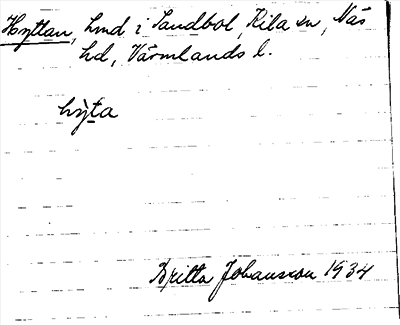 Hyttan, lmd i Sandbol, Kila sn, Näs
hd, Värmlands l.
hỳta
Britta Johansson 1934